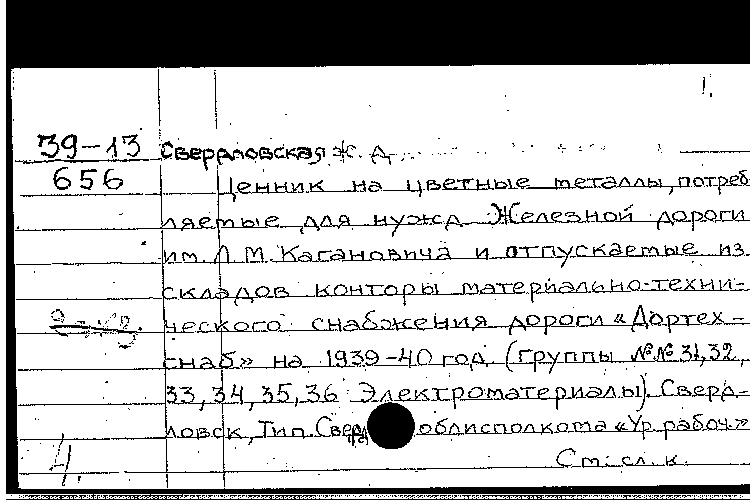 1.
39-13 Свердловская ж. д.
656 Ценник на цветные металлы, потреб
ляемые для нужд Железной дороги
им. Л. М. Кагановича и отпускаемые из
складов конторы материально-техни-
ческого снабжения дороги «Дортех-
снаб» на 1939-40 год. (группы №№ 31, 32,
33, 34, 35, 36 Электроматериалы). Сверд-
ловск, Тип. Сверд облисполкома «Ур. рабоч.»
4. См. сл. к.